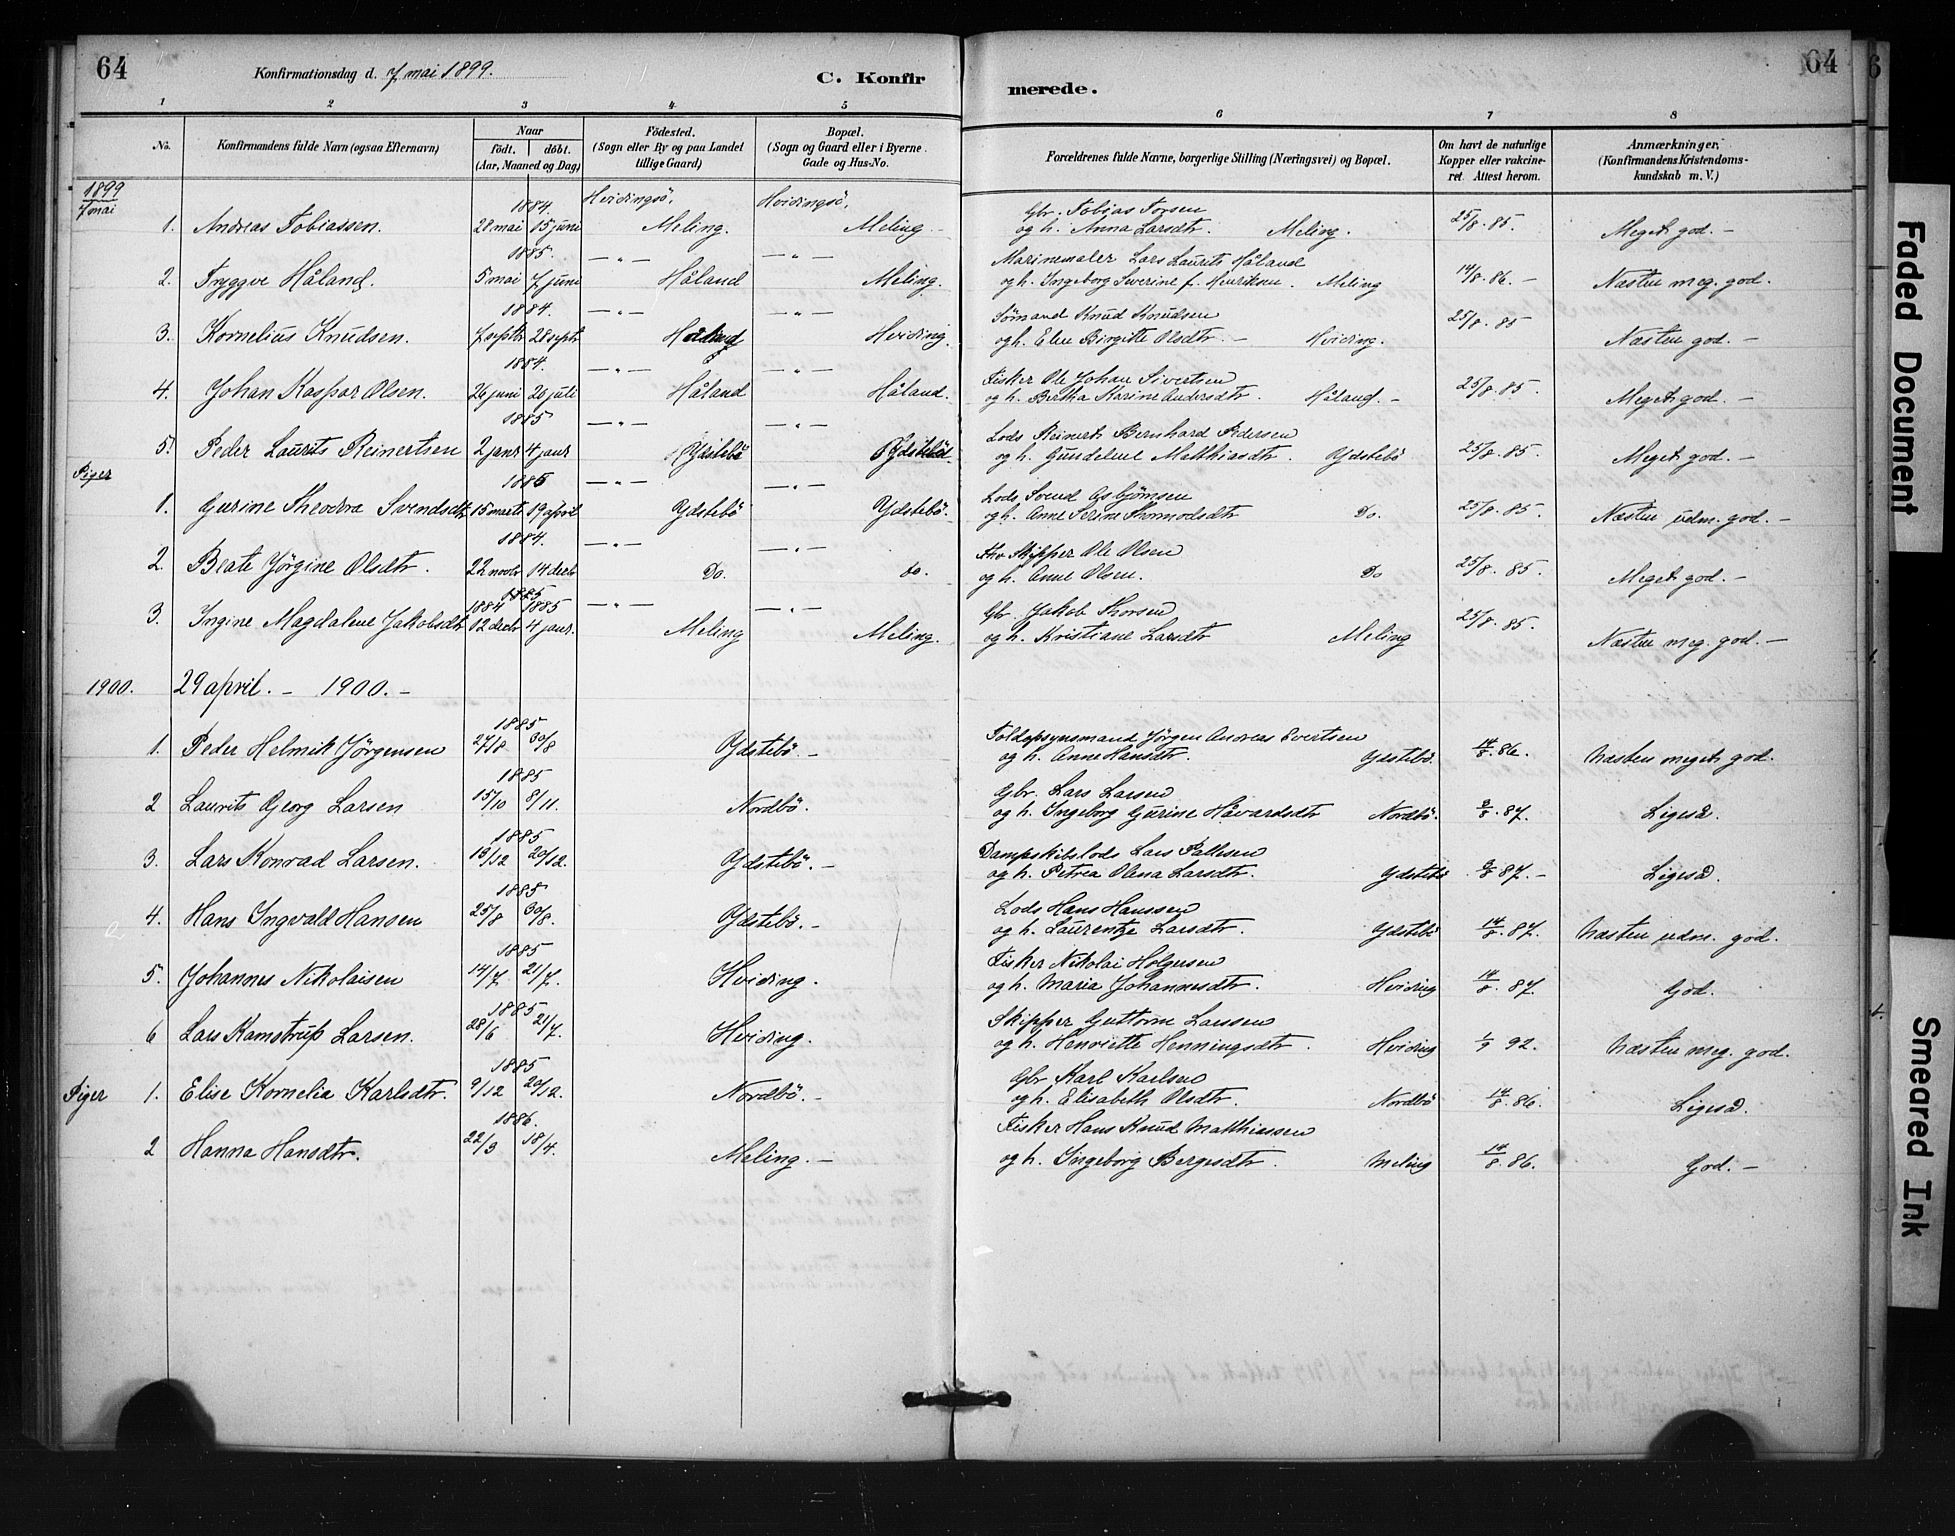 64 Konfirmationsdag d. 7 mai 1899. C. Konfirmerede. 64
1 2 3 4 5 6 7 8
No. Konfirmandens fulde Navn (ogsaa Efternavn) Naar född. döbt. (Aar, Maaned og Dag) Födested. (Sogn eller By og paa Landet tillige Gaard) Bopæl. (Sogn og Gaard eller i Byerne Gade og Hus-No. Forældrenes fulde Navne, borgerlige Stilling (Næringsvei) og Bopæl. Om havt de naturlige Kopper eller vakcineret. Attest herom. Anmærkninger, (Konfirmandens Kristendomskundskab m. V.)
1899 7 mai
1884. Hvidingsö, Hvidingsö, Gbr. Tobias Torsen
1. Andreas Tobiassen. 28 mai 15 juni Meling. Meling. og h. Anna Larsdtr. Meling. 25/8. 85. Meget god. -
1885. -"- -"- Marinemaler Lars Laurits Håland
2. Tryggve Håland. 5 mai 7 juni Håland Meling. og h. Ingeborg Severine f. Henriksen. Meling 14/8. 86. - Næsten meg. god.
1884. -"- -"- Sømand Knud Knudsen
3. Kornelius Knudsen. 7 septr 28 septr Håland Hviding. og h. Elen Birgitte Olsdtr. - Hviding. 25/8. 85 Næsten god. -
1884. -"- -"- Fisker Ole Johan Sivertsen
4. Johan Kaspar Olsen. 26 juni 20 juli Håland Håland. og h. Bertha Karine Andersdtr. Håland - 25/8. 85. Meget god. -
1885 -"- -"- Lods Reinert Bernhard Pedersen
5. Peder Laurits Reinertsen 2 janr 4 janr Ydstebö Ydstebö og h. Gundeline Matthiasdtr. Ydstebö 25/8. 85. Meget god. -
Piger
1885 -"- -"- Lods Svend Asbjørnsen
1. Gurine Theodra Svendsdtr 15 marts 19 april Ydstebö Ydstebö. og h. Anne Serine Thormodsdtr Do. 25/8. 85. Næsten udm. god. -
1884. -"- -"- Skipper Ole Olsen
2. Beate Jörgine Olsdtr. 22 novbr 14 decbr Do. do. og h. Anne Olsen. Do 25/8. 85. Meget god. -
1884 1885 -"- -"- Gbr. Jakob Thorsen
3. Ingine Magdalene Jakobsdtr 12 decbr 4 janr. Meling Meling. og h. Kristiane Larsdtr Meling 25/8. 85. Næsten meg. god. -
1900. 29 april. - 1900. -
1885 Toldopsynsmand Jörgen Andreas Evertsen
1. Peder Helmik Jörgensen 27/8 30/8 Ydstebö. - og h. Anne Hansdtr. Ydstebö. 14/8. 86. Næsten meget god.
1885 Gbr. Lars Larsen
2 Laurits Georg Larsen 15/10 8/11. Nordbö. og h. Ingeborg Gurine Håvardsdtr Nordbö. 9/8. 87. Ligeså.
1885 Dampskibslods Lars Pallesen
3. Lars Konrad Larsen. 13/12 20/12. Ydstebö. - og h. Petrea Olena Larsdtr. Ydstebö 9/8 87. - Ligeså.
1885 Lods Hans Hanssen
4. Hans Ingvald Hansen 25/8 30/8. Ydstebö. - og h. Laurentze Larsdtr. Ydstebö 14/8. 87. Næsten udm. god.
1885 Fisker Nikolai Holgersen
5. Johannes Nikolaisen 14/7 21/7. Hviding. og h. Maria Johannesdtr. Hviding 14/8. 87. God.
1885 Skipper Guttorm Larssen
6 Lars Kamstrup Larsen. 28/6 21/7. Hviding. og h. Henriette Henningsdtr. Hviding 1/9 92. Næsten meg. god.
1885 Gbr Karl Karlsen
Piger 1. Elise Kornelia Karlsdtr. 9/12 20/12. Nordbö. - og h. Elisabeth Olsdtr. Nordbö 14/8. 86. Ligeså.
1886. Fisker Hans Knud Matthiassen
2 Hanna Hansdtr. 22/3 18/4. Meling. - og h. Ingeborg Bergesdtr. Meling 14/8. 86. God. -
Faded Document
Smeared Ink